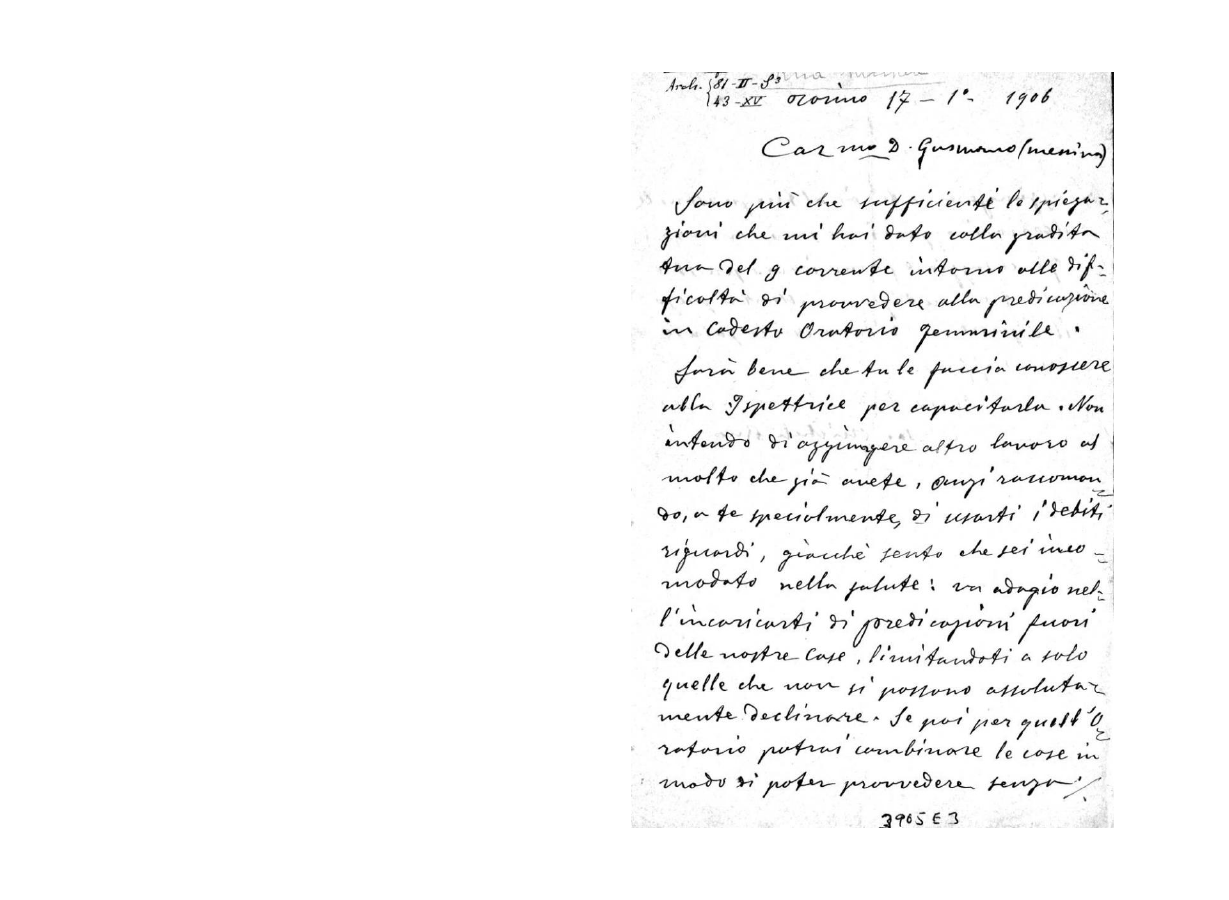 Arch. 81-II-S3
43-XV Torino 17 - 1° - 1906
Car.mo D. Gusmano (Messina)
Sono più che sufficienti le spiega=
zioni che mi hai dato colla gradita
tua del 9 corrente intorno alle dif=
ficoltà di provvedere alla predicazione
in codesto Oratorio femminile.
Sarà bene che tu le faccia conoscere
alla Ispettrice per capacitarla. Non
intendo di aggiungere altro lavoro al
molto che già avete, anzi raccoman=
do, a te specialmente, di usarti i debiti
riguardi, giacchè sento che sei inco=
modato nella salute: va adagio nel=
l'incaricarti di predicazioni fuori
delle nostre Case, limitandoti a solo
quelle che non si possono assoluta=
mente declinare. Se poi per quell'O=
ratorio potrai combinare le cose in
modo di poter provvedere senza ./.
3905 E 3